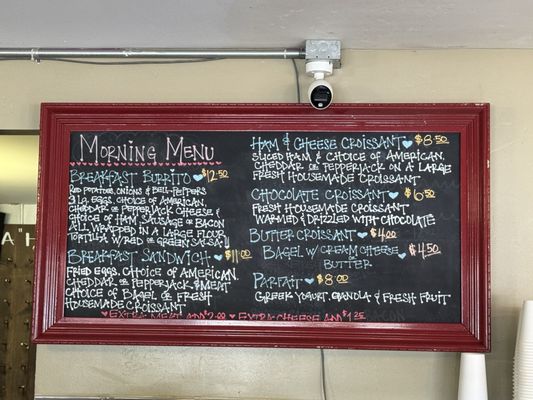 Morning Menu
Breakfast Burrito $12.50
Red potatoes, onions & bell peppers
3 LG. eggs, choice of American,
cheddar or pepperjack cheese &
choice of ham sausage or bacon
all wrapped in a large flour
tortilla w/ red or green salsa
Breakfast Sandwich $11.00
Fried eggs, choice of American
cheddar or pepperjack & meat
choice of bagel or fresh
housemade croissant
Extra meat add $2.00 Extra cheese add $1.25
Ham & Cheese Croissant $8.50
Sliced ham & choice of American,
cheddar or pepperjack on a large
fresh housemade croissant
Chocolate Croissant $6.50
Fresh housemade croissant
warmed & drizzled with chocolate
Butter Croissant $4.00
Bagel w/ Cream Cheese $4.50
Butter
Parfait $8.00
Greek yogurt, granola & fresh fruit